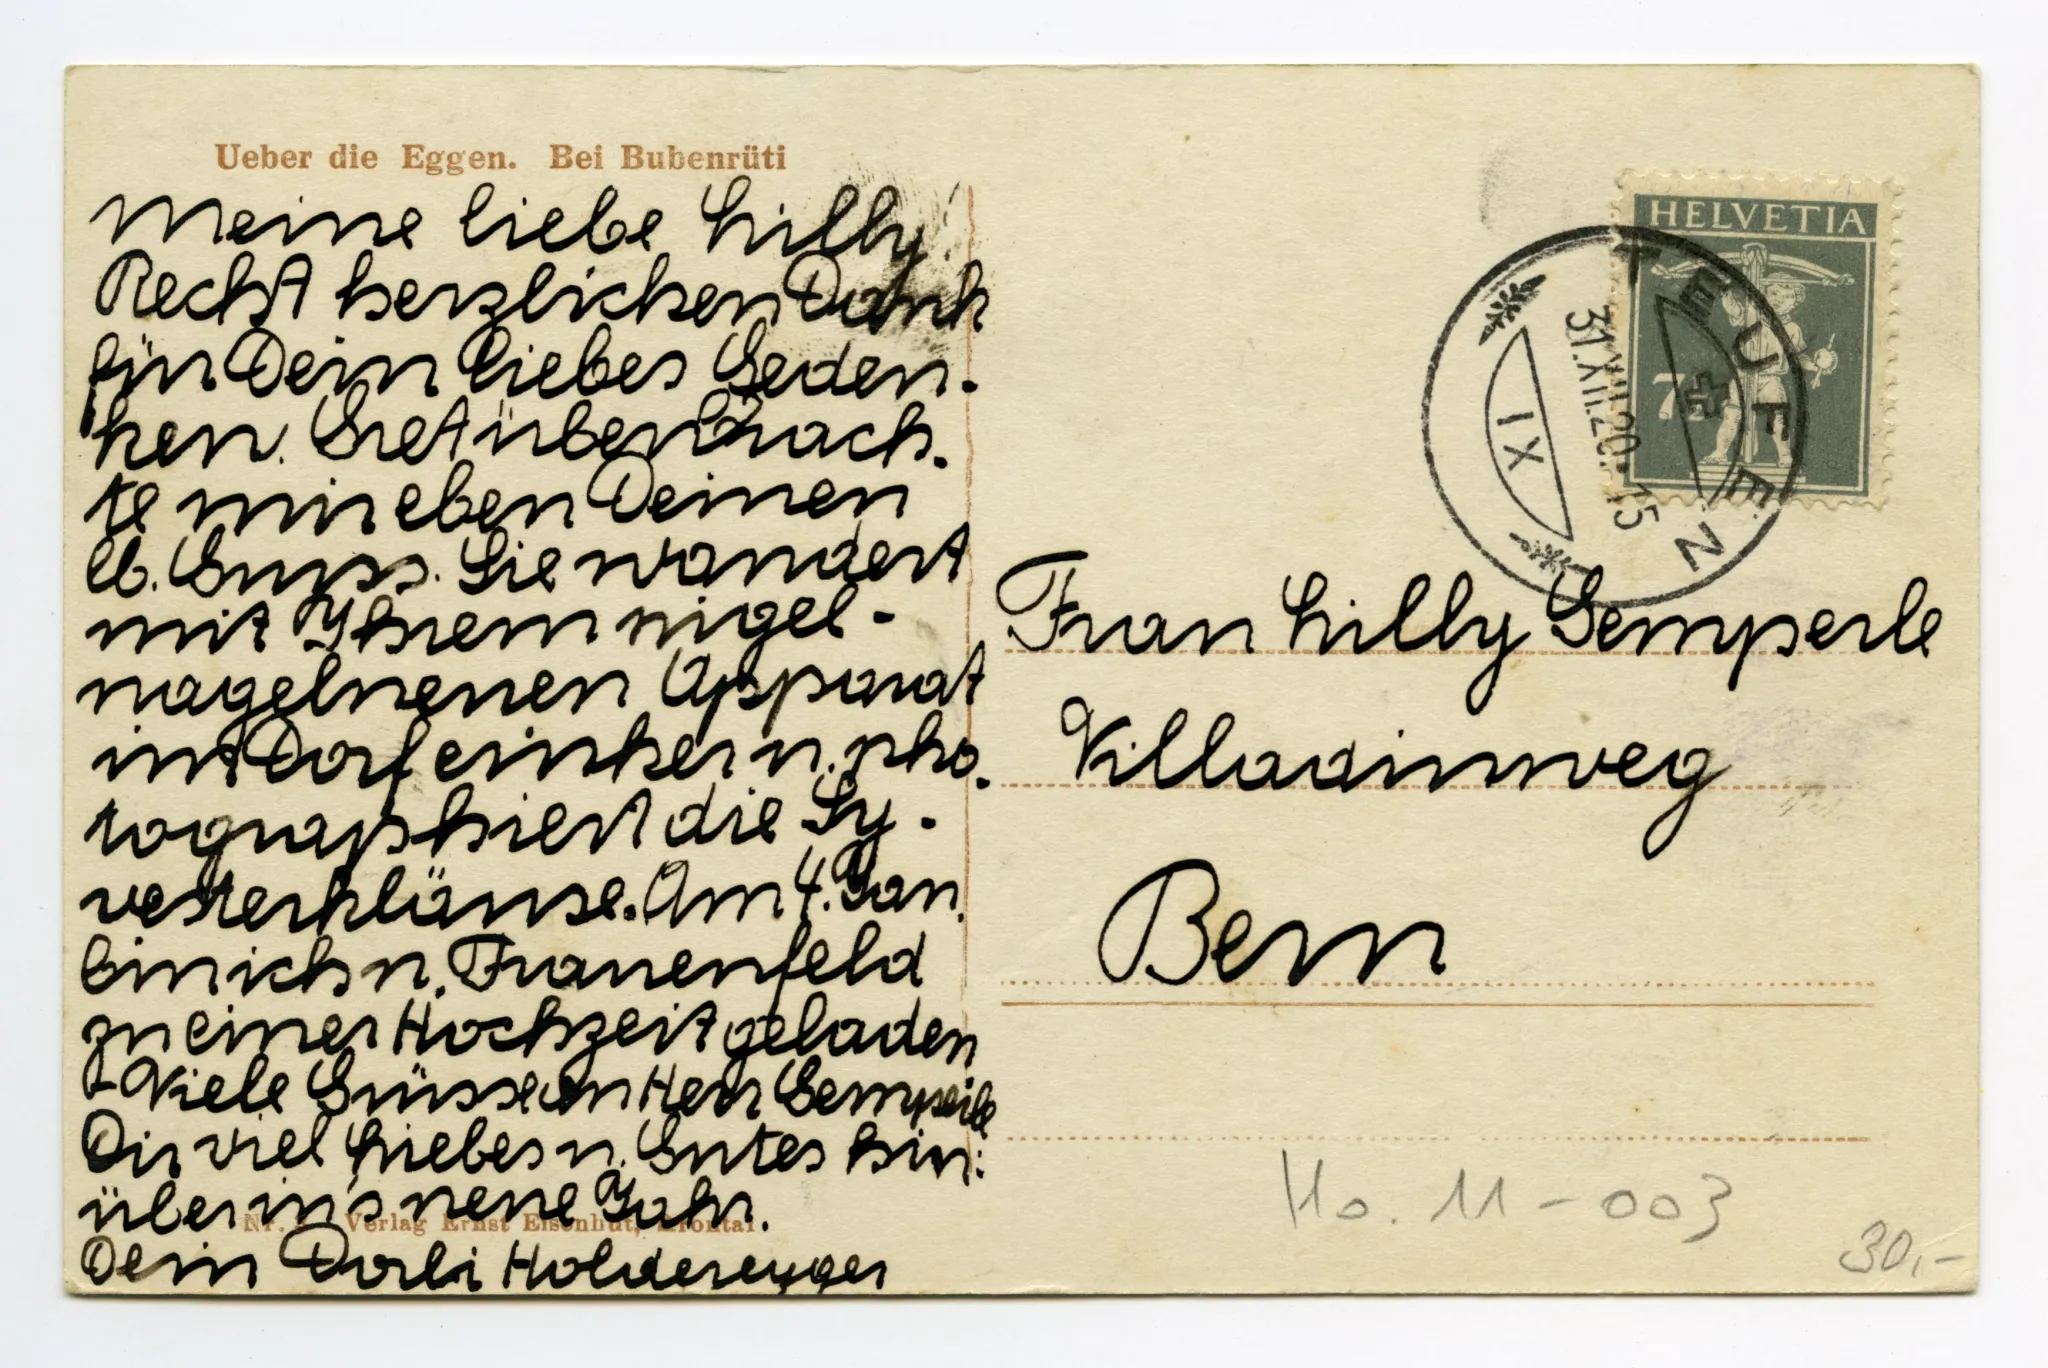 Ueber die Eggen. Bei Bubenrüti
Meine liebe Lilly
Recht herzlichen Dank
für Dein liebes Geden-
ken. Gret überbrach-
te mir eben Deinen
lb. Gruss. Sie wandert
mit Ihrem nigel-
nagelneuen Apparat
ins Dorf einher u. pho-
tographiert die Sy-
vesterkläuse. Am 4. Jan.
bin ich n. Frauenfeld
zu einer Hochzeit geladen
- Viele Grüsse an Herr Gemperle
Dir viel Liebes u. Gutes hin-
über in's neue Jahr.
Nr. Verlag Ernst Eisenhut,
Dein Dorli Holderegger
HELVETIA
7½
TEUFEN
31.XII.20.-15
IX
Frau Lilly Gemperle
Villadinweg
Bern
Ho. 11-003
30,-